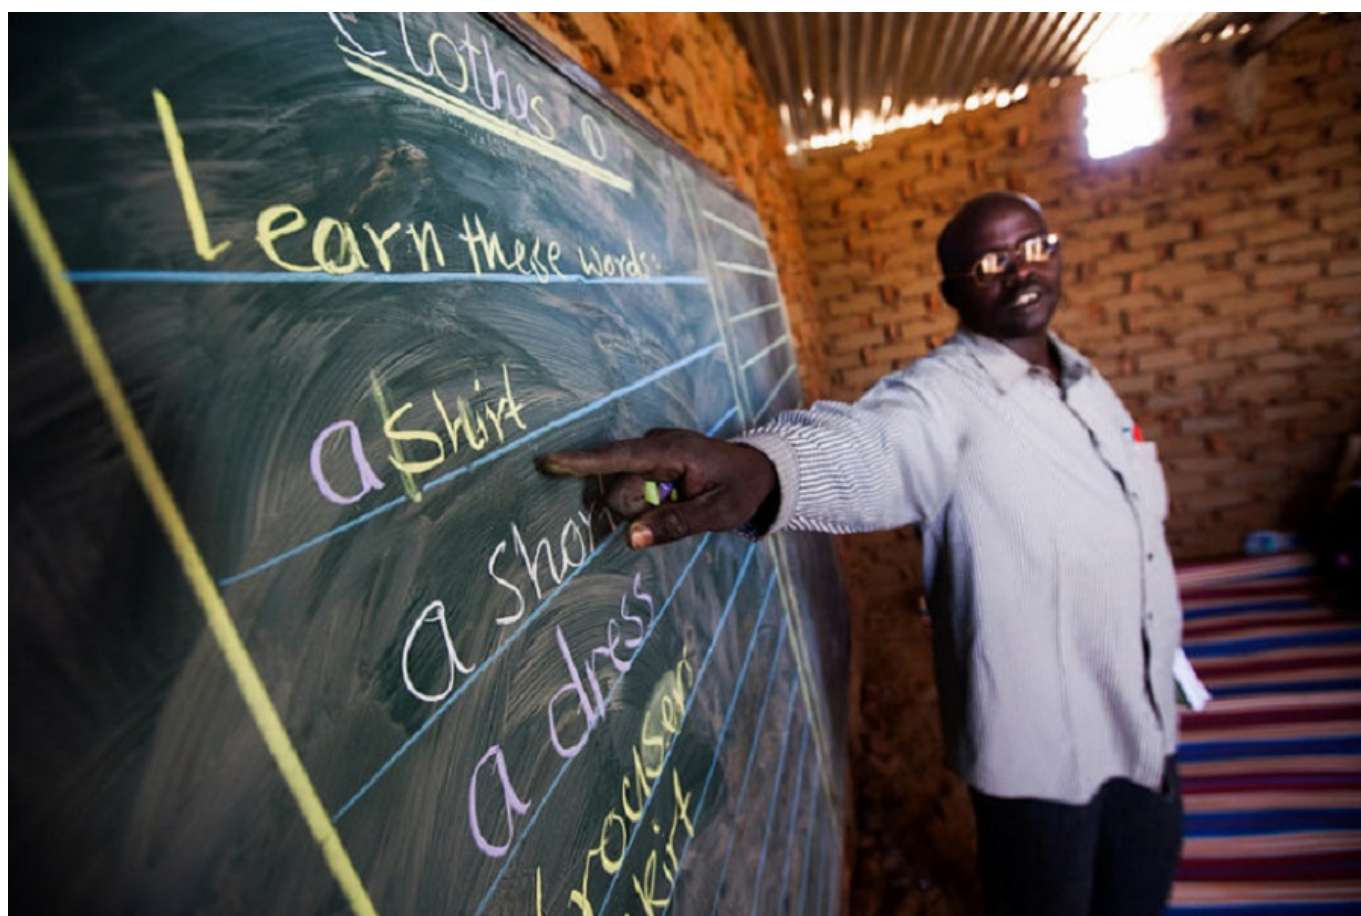 Clothes
Learn these words:
a shirt
a shor
a dress
trouser
skirt